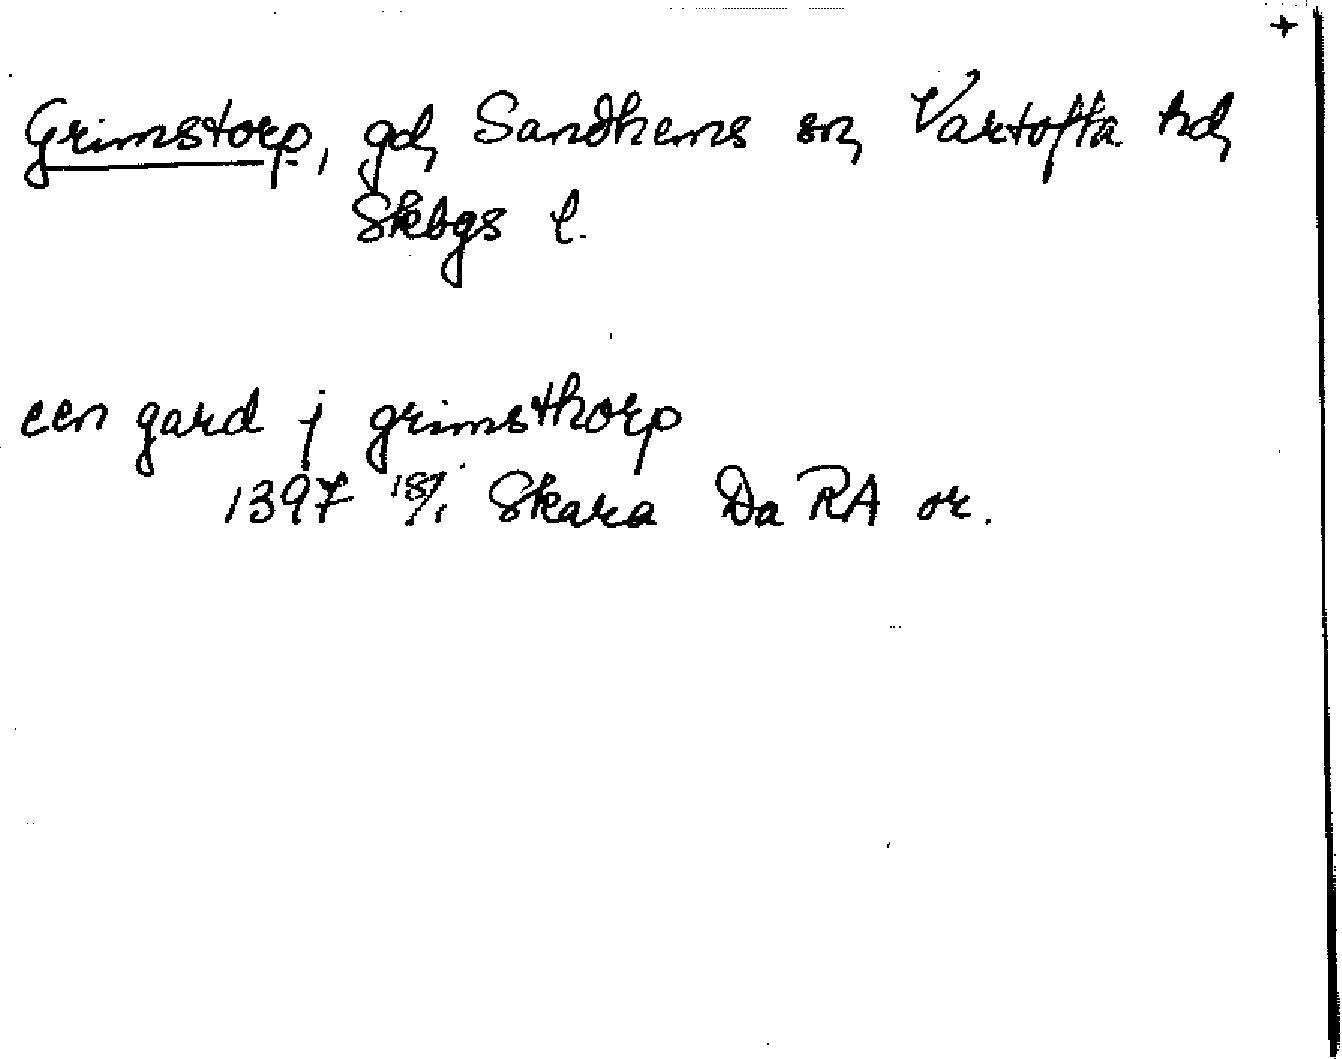 +
Grimstorp, gd, Sandhems sn, Vartofta hd,
Skbgs l.
een gard j grimsthorp
1397 18/1 Skara Da RA or.